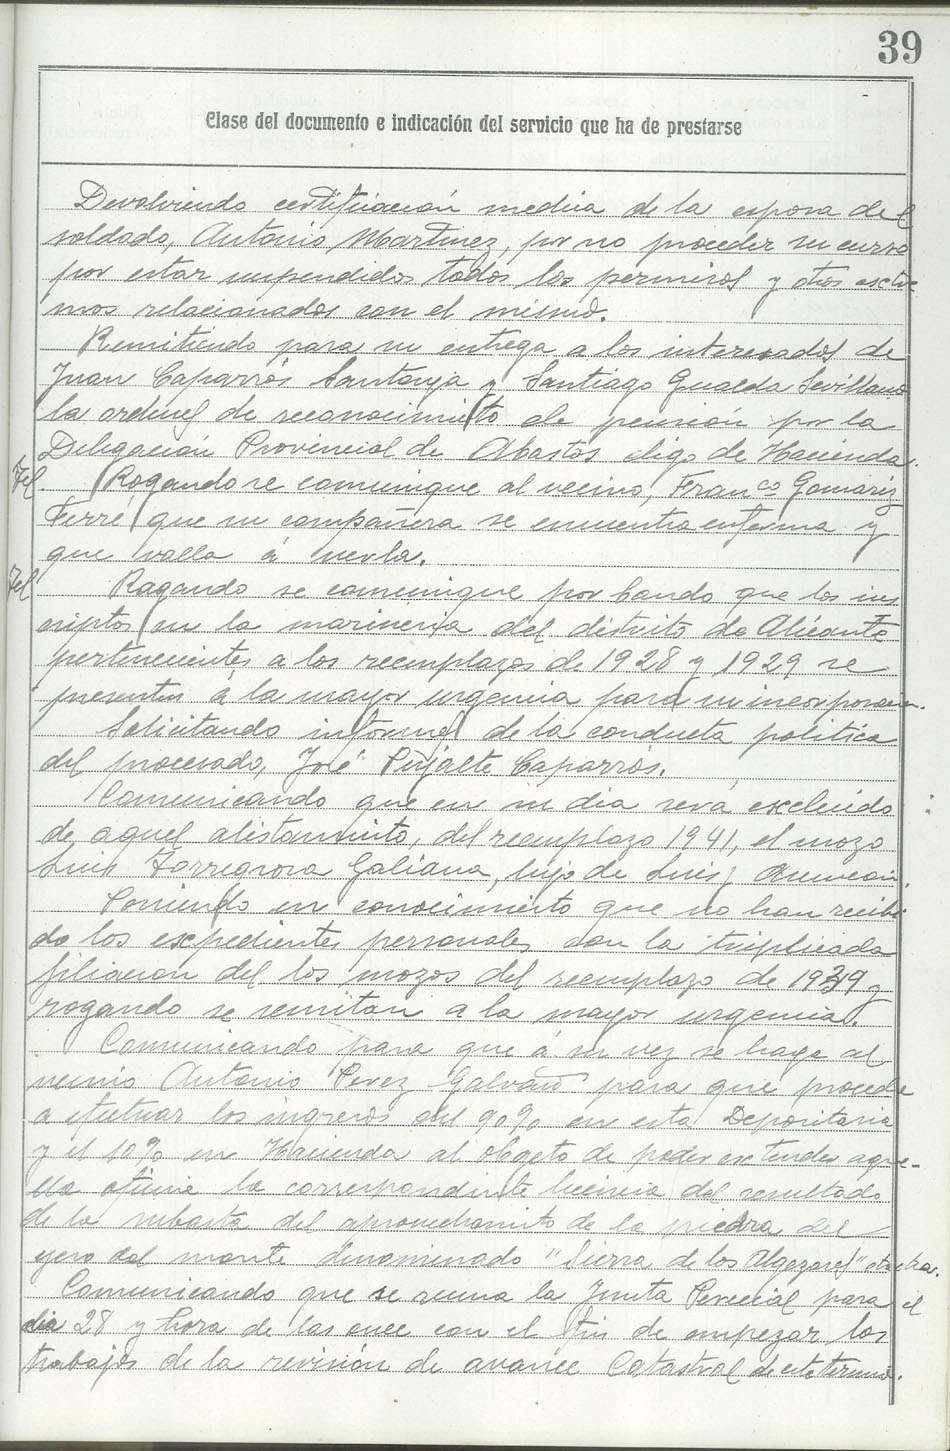 39
Clase del documento e indicación del servicio que ha de prestarse
Devolviendo certificación medica de la esposa del
soldado, Antonio Martinez, por no proceder su curso
por estar suspendidos todos los permisos y otros extre
mos relacionados con el mismo.
Remitiendo para su entrega a los interesados de
Juan Caparrós Santonja y Santiago Gualda Sevillano
la ordenes de reconocimiento de pensión por la
Delegación Provincial de Abastos digo de Hacienda.
Tel Rogando se comunique al vecino, Franco Gomariz
Ferré que su compañera se encuentra enferma y
que valla á verla.
Tel Rogando se comunique por bando que los ins
criptos en la marineria del distrito de Alicante
pertenecientes a los reemplazos de 1928 y 1929 se
presenten á la mayor urgencia para su incorporación.
Solicitando informes de la conducta politica
del procesado, José Piñalte Caparrós.
Comunicando que en su dia será excluido
de aquel alistamiento, del reemplazo 1941, el mozo
Luis Torregrosa Galiana, hijo de Luis y Asunción.
Poniendo en conocimiento que no han recibi
do los expedientes personales con la triplicada
filiacion del los mozos del reemplazo de 1939 y
rogando se remitan a la mayor urgencia.
Comunicando para que á su vez se haga al
vecino Antonio Perez Galvañ para que procede
a efectuar los ingresos del 90% en esta Depositaria
y el 10% en Hacienda al objeto de poder extender aque-
lla oficina la correspondiente licencia del resultado
de la subasta del aprovechamiento de la piedra del
yeso del monte denominado "Sierra de los Algezares"
Comunicando que se reuna la Junta Pericial para el
dia 28 y hora de las once con el fin de empezar los
trabajos de la revisión de avance Catastral de este termino.